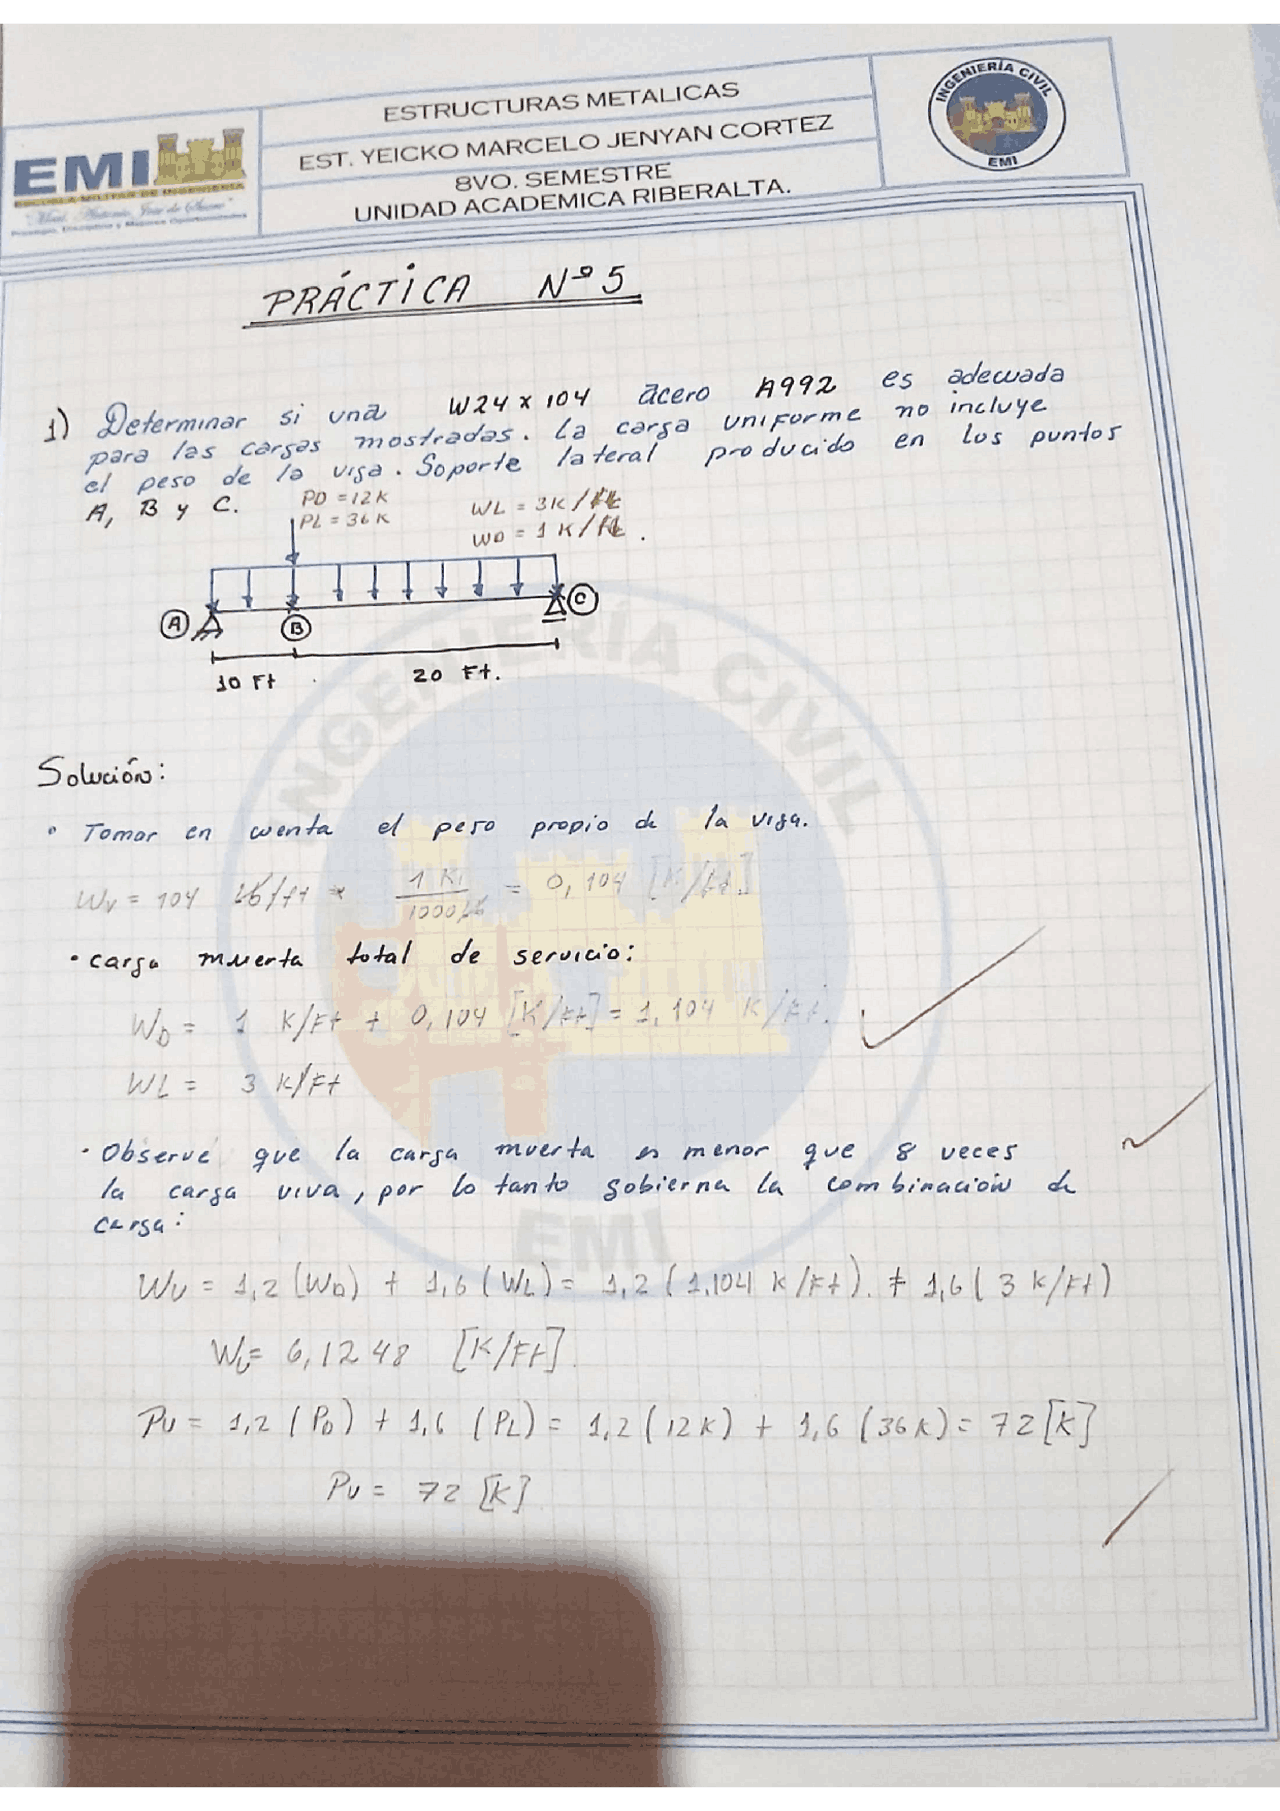 EMI
ESCUELA MILITAR DE INGENIERIA
"Mcal. Antonio José de Sucre"
ESTRUCTURAS METALICAS
EST. YEICKO MARCELO JENYAN CORTEZ
8VO. SEMESTRE
UNIDAD ACADEMICA RIBERALTA.
INGENIERÍA CIVIL
EMI
PRÁCTICA Nº 5
1) Determinar si una W24 x 104 acero A992 es adecuada
para las cargas mostradas. La carga uniforme no incluye
el peso de la viga. Soporte lateral producido en los puntos
A, B y C.
PD = 12 K
PL = 36 K
WL = 3K/ft
WD = 1 K/ft.
A
B
C
10 Ft
20 Ft.
Solución:
• Tomar en cuenta el peso propio de la viga.
Wv = 104 lb/ft * 1 Ki/1000lb = 0,104 [K/ft]
• carga muerta total de servicio:
WD = 1 K/Ft + 0,104 [K/Ft] = 1,104 K/Ft.
WL = 3 K/Ft
• Observe que la carga muerta es menor que 8 veces
la carga viva, por lo tanto gobierna la combinación de
carga:
WU = 1,2 (WD) + 1,6 (WL) = 1,2 (1,104 K/Ft). + 1,6 ( 3 K/Ft)
WU= 6,1248 [K/Ft].
PU = 1,2 (PD) + 1,6 (PL) = 1,2 (12 K) + 1,6 (36 K) = 72 [K]
PU = 72 [K]
INGENIERÍA CIVIL
EMI